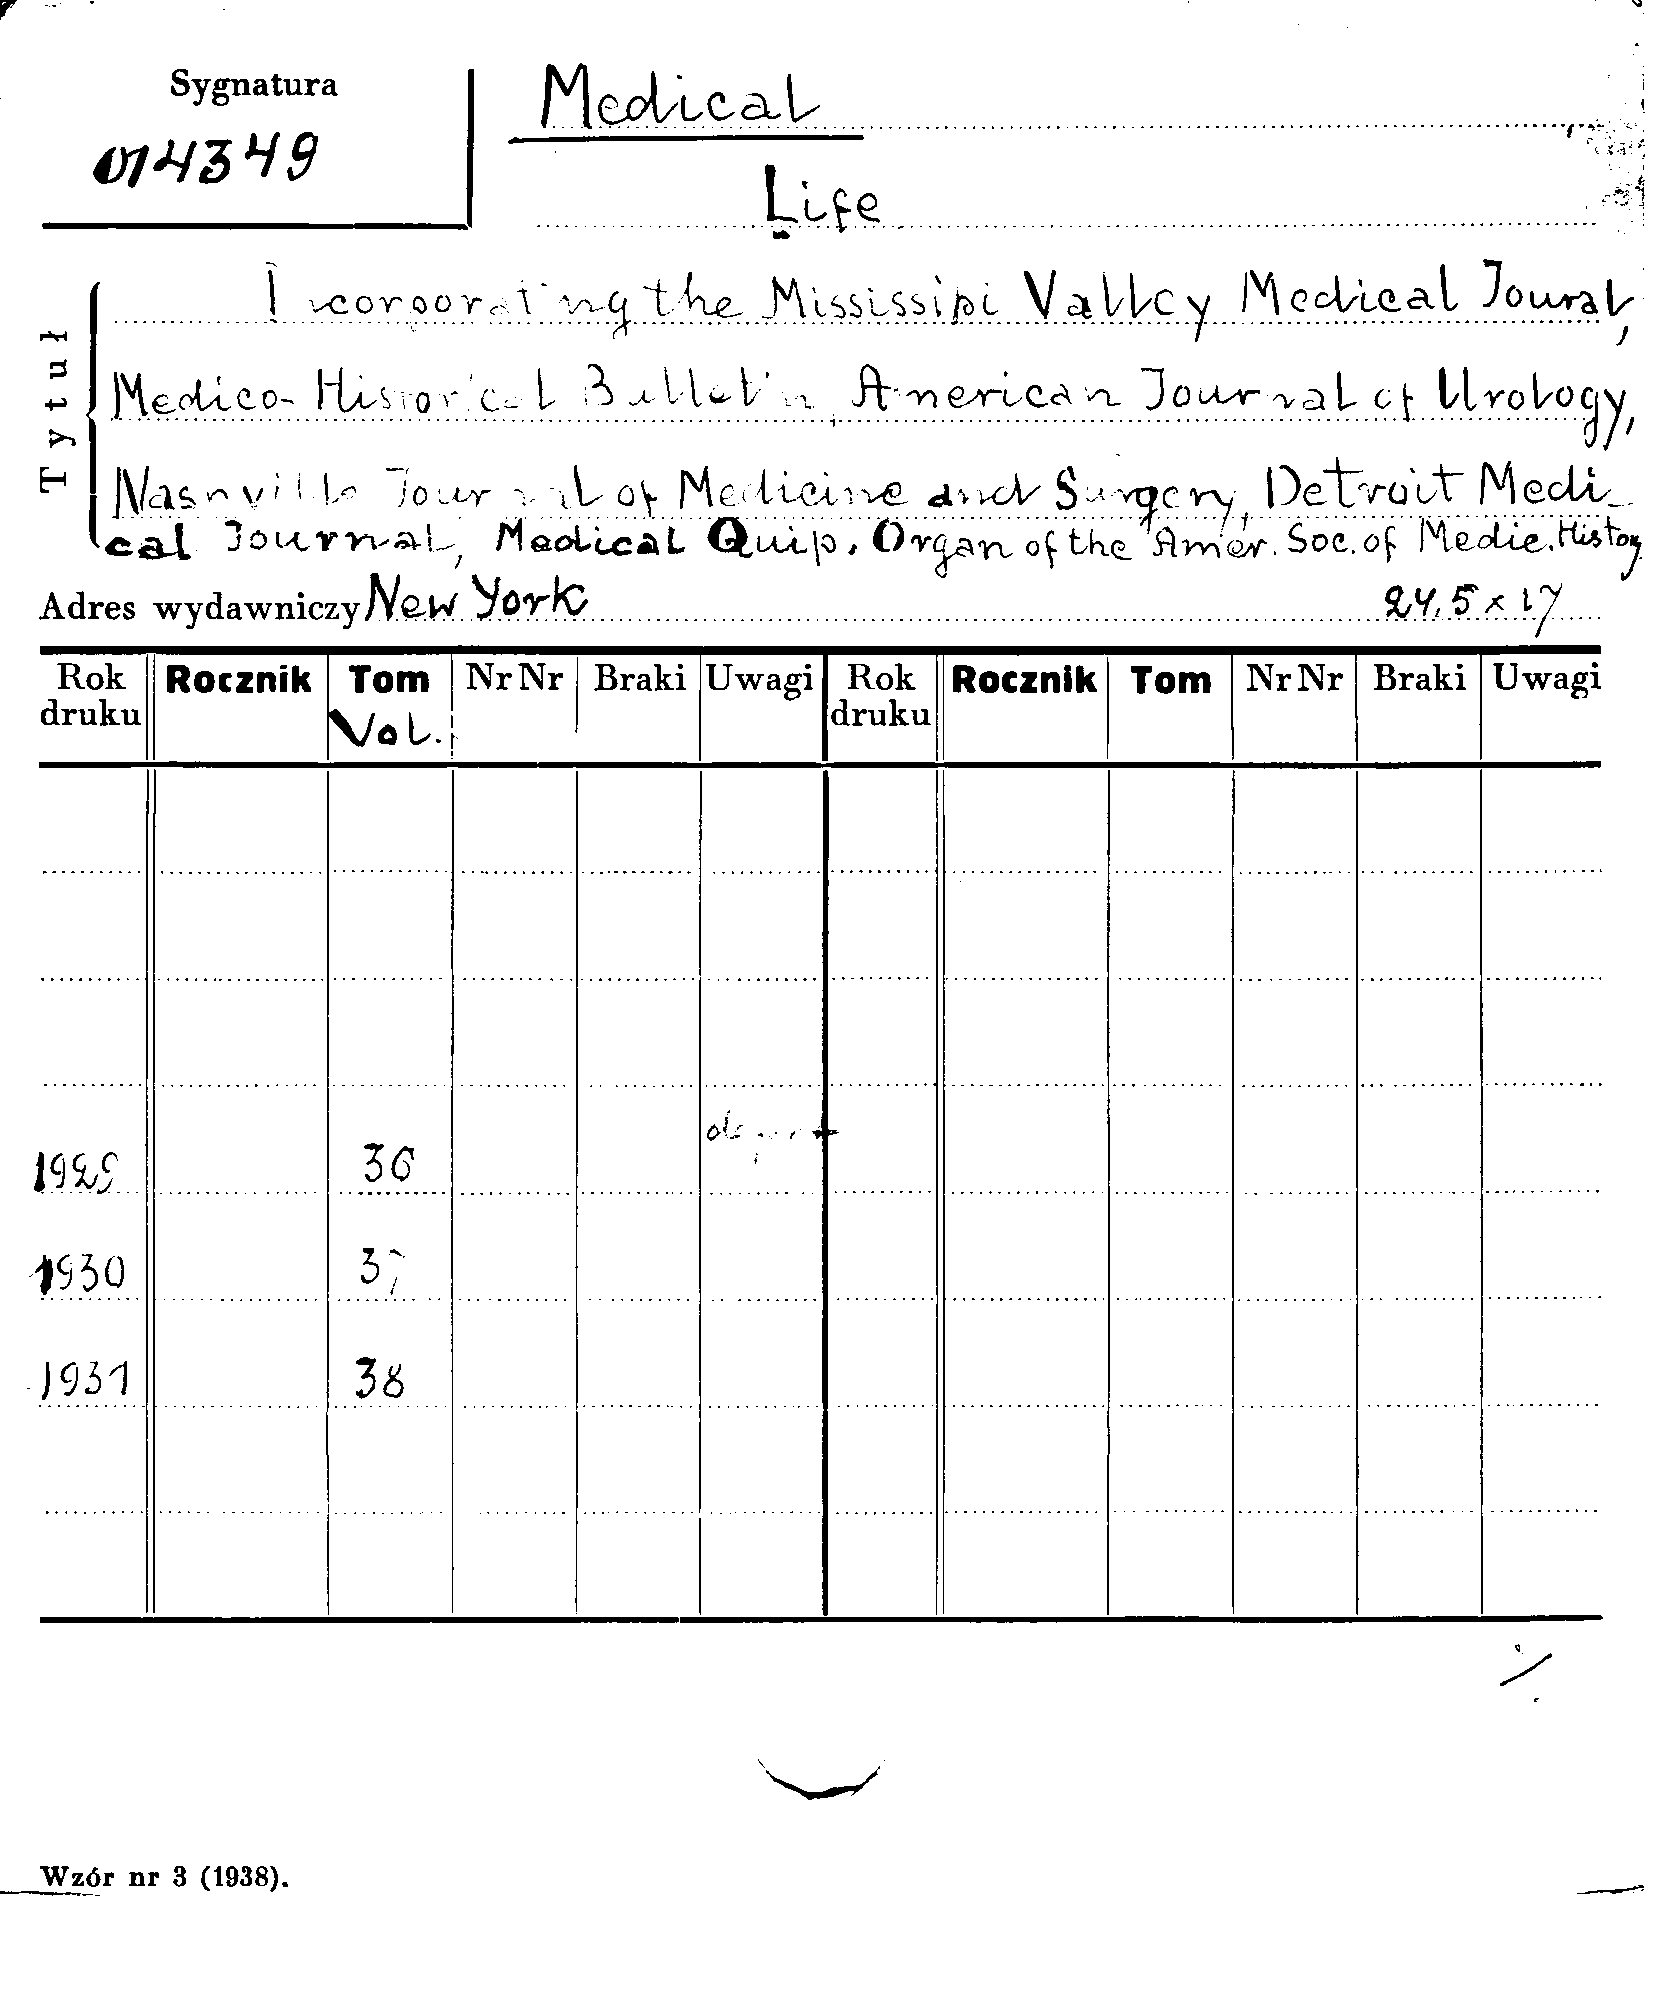 Sygnatura
014349
Medical
Life
Tytuł
Incorporating the Mississipi Valley Medical Joural,
Medico-Historical Bulletin, American Journal of Urology,
Nashville Journal of Medicine and Surgery, Detroit Medi-
cal Journal, Medical Quip. Organ of the Amer. Soc. of Medic. History
Adres wydawniczy New York 24,5 x 17
Rok druku Rocznik Tom Nr Nr Braki Uwagi Rok druku Rocznik Tom Nr Nr Braki Uwagi
Vol.
1929 36
1930 37
1931 38
Wzór nr 3 (1938).